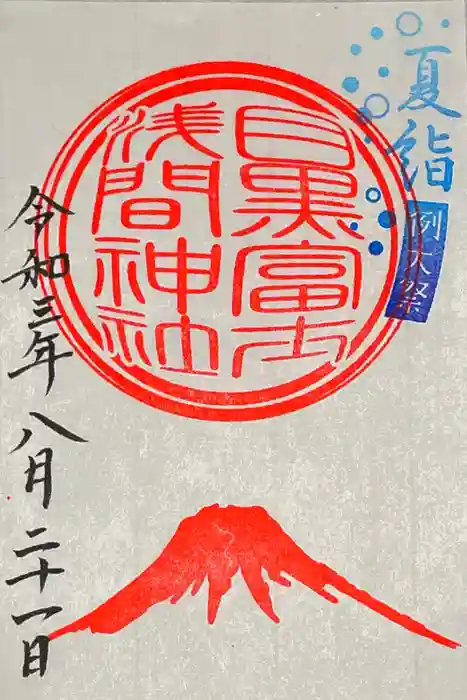 夏詣
例大祭
目黒富士
浅間神社
令和三年八月二十一日